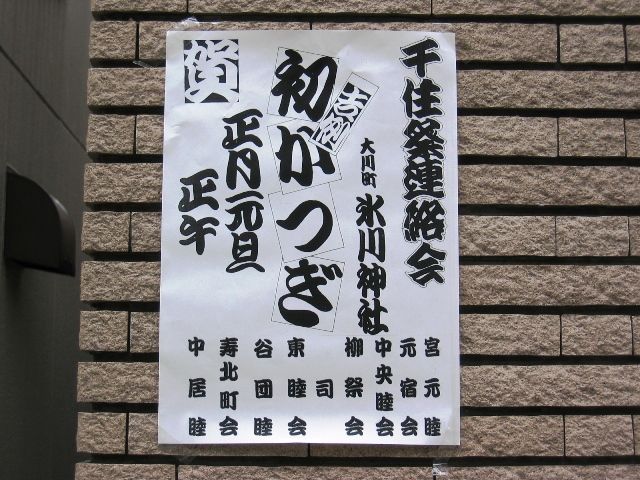 千住祭連絡会
大川町 氷川神社
吉例
初かつぎ
賀
正月元旦
正午
宮元睦
元宿会
中央睦会
柳祭会
司
東睦会
谷団睦
寿北町会
中居睦